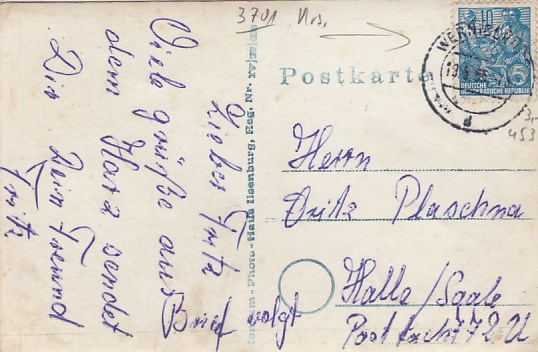 3701 Nrs.
Lieber Fritz
Viele grüße aus
dem Harz sendet
Dir Dein Freund
Fritz
Brief folgt
Photo-Haus Ilsenburg, Reg. Nr.
Postkarte
Herrn
Fritz Plaschna
Halle/Saale
Postfach 772 U
10
5
DEUTSCHE
DEMOKRATISCHE REPUBLIK
WERNIGERODE
453